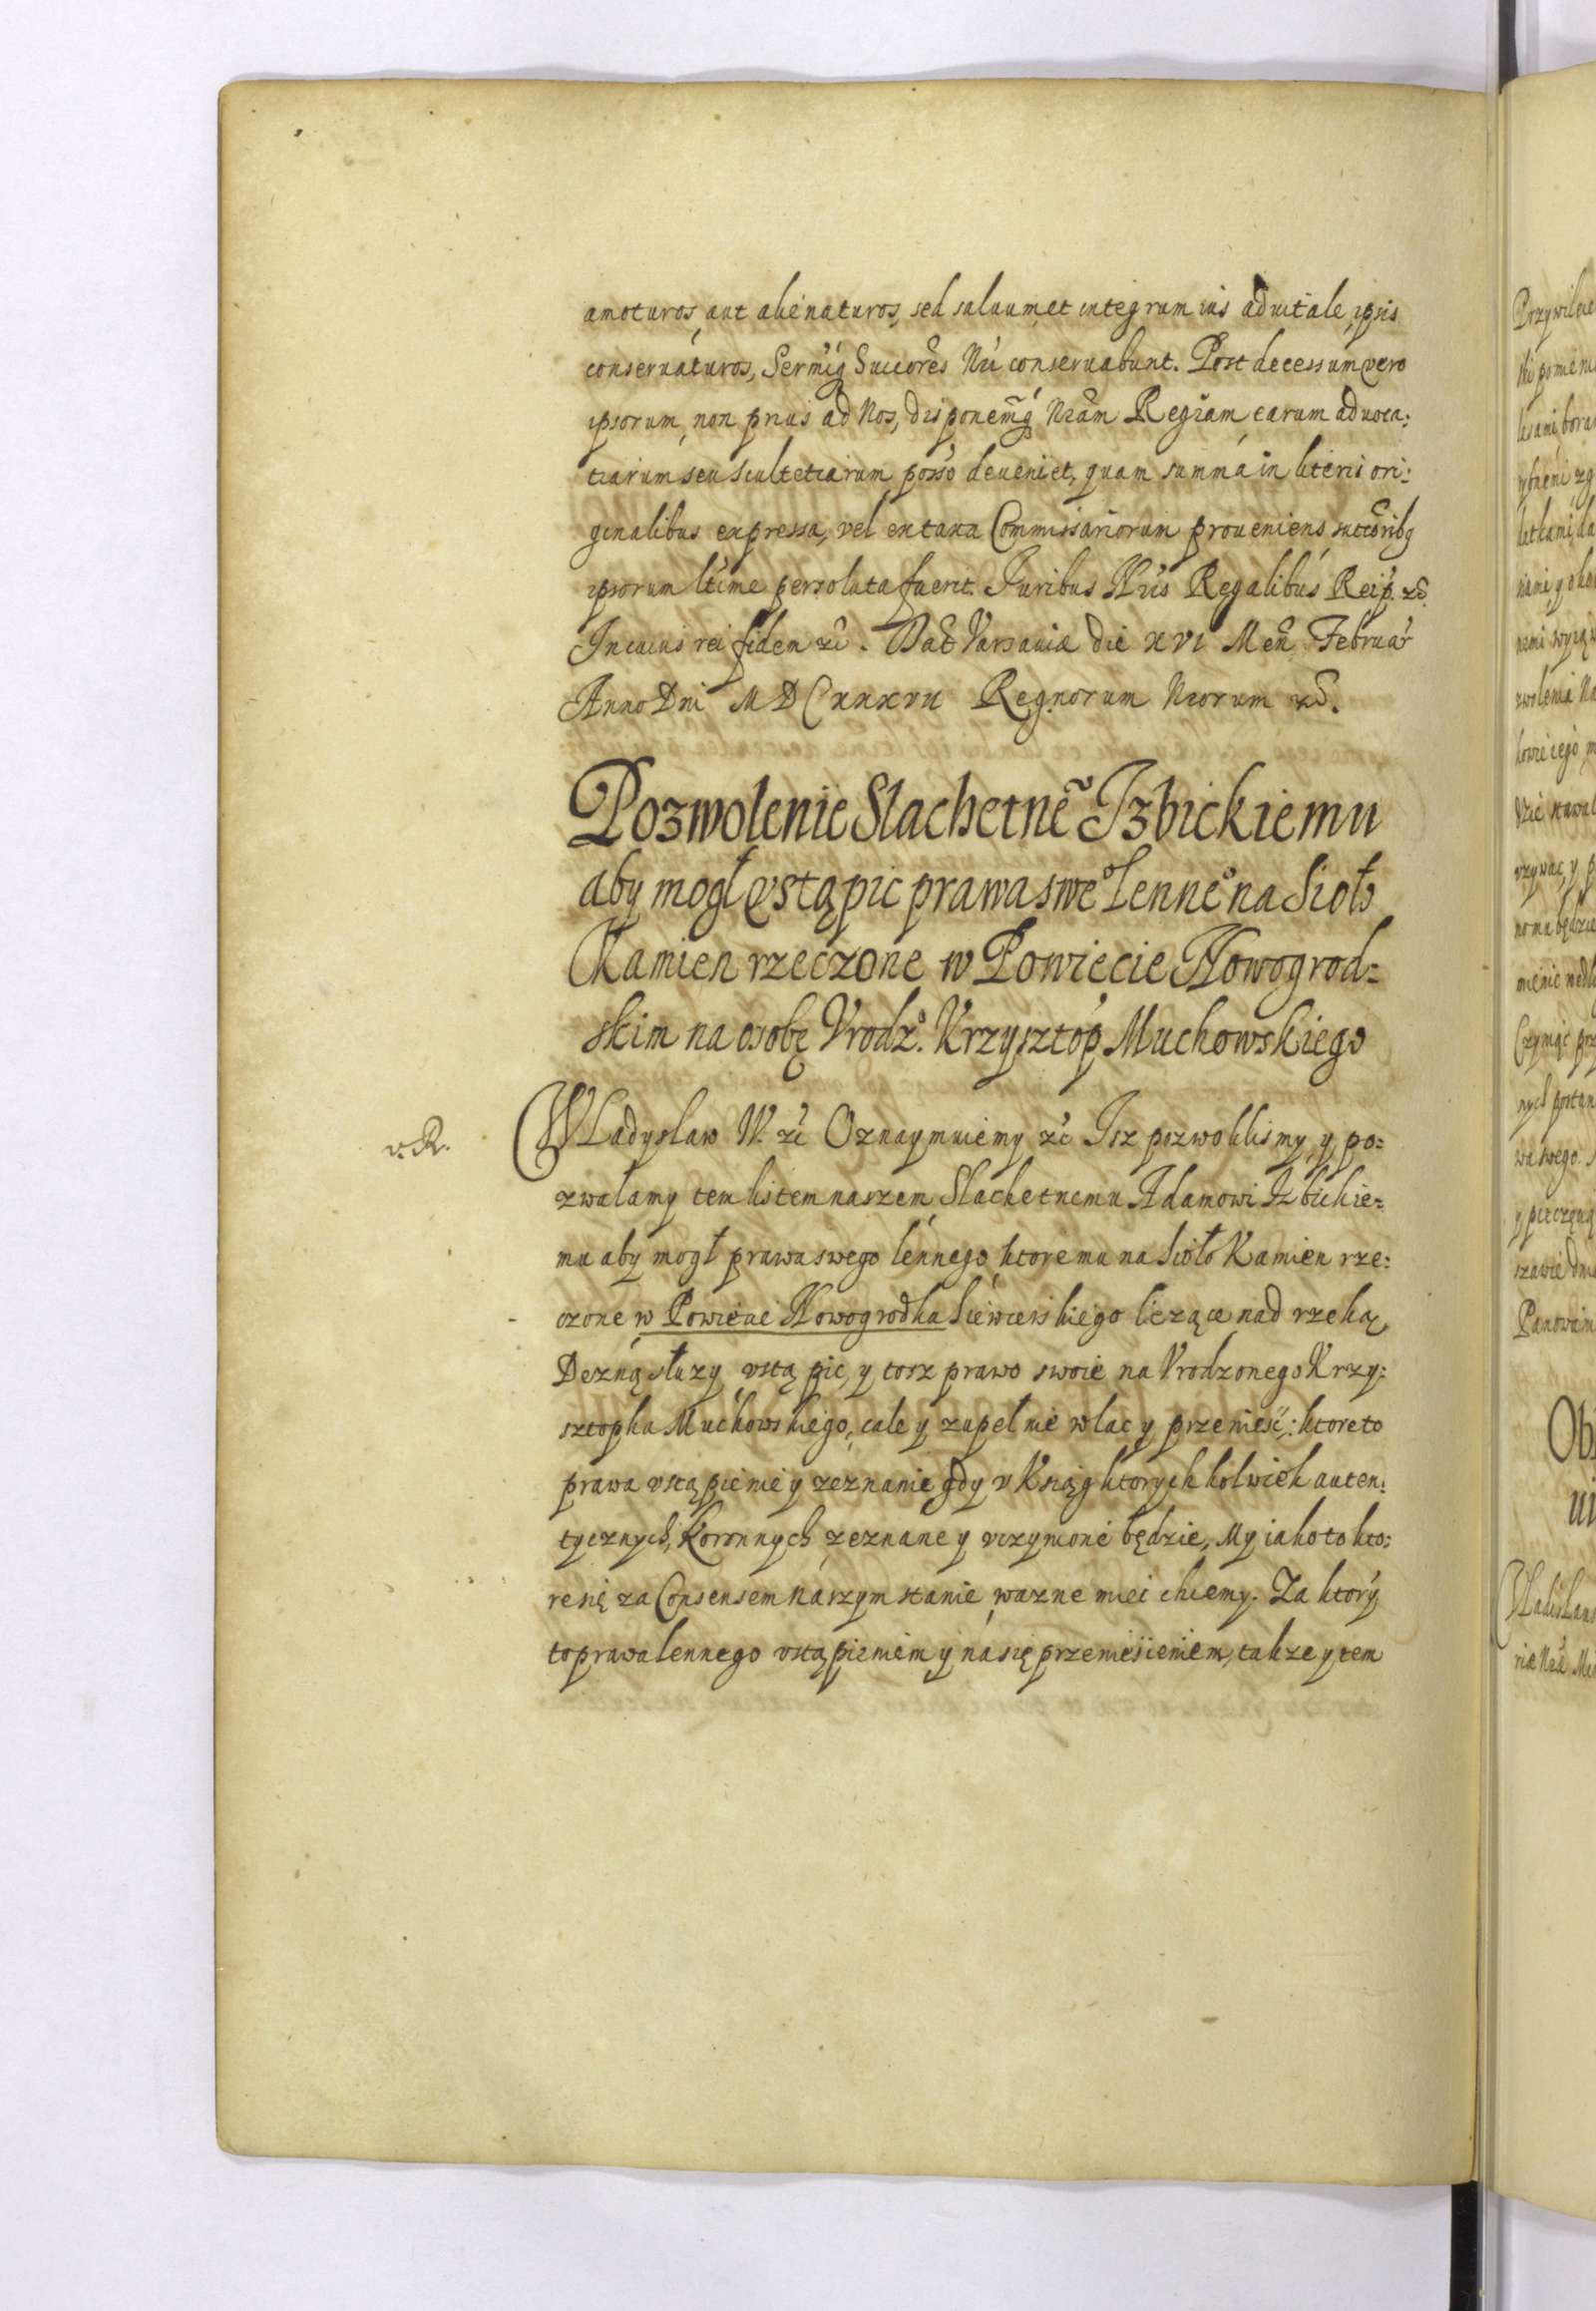 amoturos, aut alienaturos, sed saluum et integrum ius aduitale, ipsis
conseruaturos, Sermiq̃ Succores Nri conseruabunt. Post decessum vero
ipsorum, non prius ad Nos, disponemq̃ Nram Regiam earum aduoca:
tiarum seu Scultetiarum posso deueniet, quam summa in literis ori:
ginalibus expressa, vel ex taxa Commissariorum proueniens succoribg
ipsorum ltime persoluta fuerit. Juribus Nris Regalibus Reip. zc̃.
In cuius rei fidem zc̃. Dat Varsauiæ die XVI Men Februar
Anno Dni MDCXXXVII Regnorum Nrorum zc̃.
Pozwolenie Slachetne͠ Izbickiemu
aby mogł vstąpic prawa swe° Lenne° na Sioło
Kamien rzeczone w Powiecie Nowogrod:
skim na osobę Vrodz°. Krzysztop Muchowskiego
v. R.
WLadysław IV. zc̃ Oznaymuiemy zc̃ Isz pozwolilismy, y po:
zwalamy tem listem naszem Slachetnemu Adamowi Izbickie:
mu aby mogł prawa swego lennego, ktore mu na Sioło Kamien rze:
czone w Powiecie Nowogrodka Siewierskiego liezące nad rzeką
Dezną słuzy vstąpic, y tosz prawo swoie na Vrodzonego Krzy:
sztopha Muchowskiego, cale y zupełnie wlac y przeniesc: ktore to
prawa vstąpienie y zeznanie gdy v Ksiąg ktorychkolwiek auten:
tycznych, Koronnych zeznane y vczynione będzie, My iako to kto:
re się za Consensem naszym stanie wazne miec chcemy. Za ktory
to prawa lennego vstąpieniem y na się przeniesieniem, takze y tem